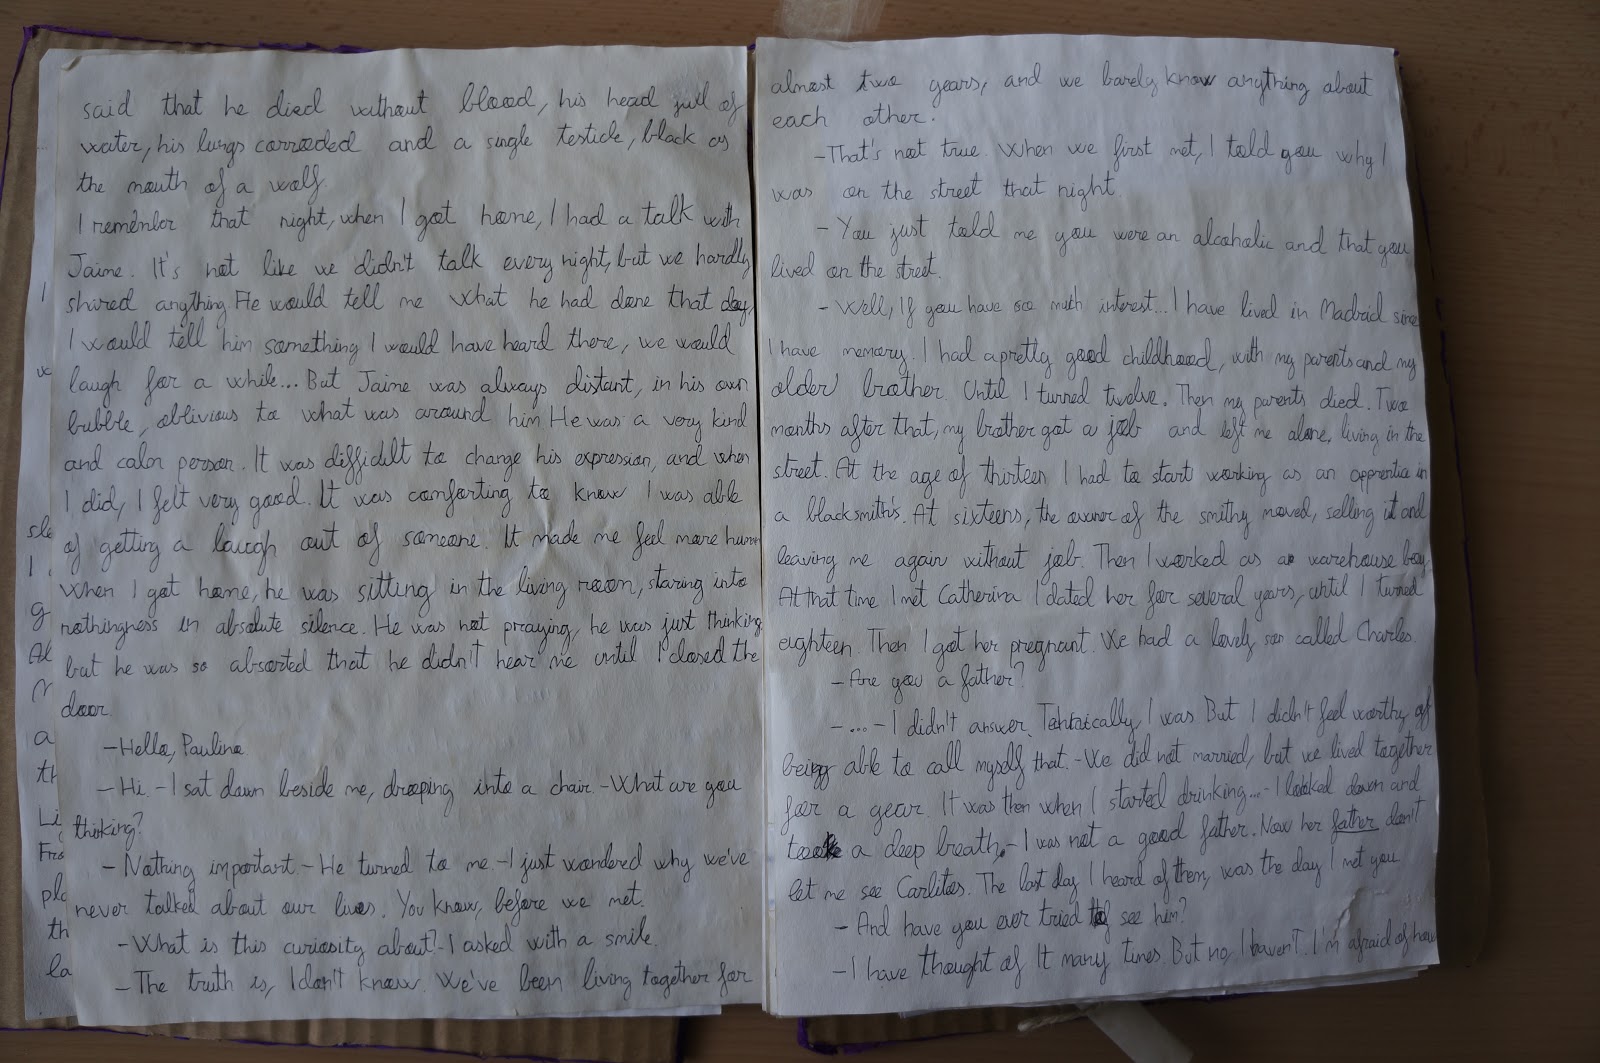 said that he died without blood, his head full of
water, his lungs corroded and a single testicle, black as
the mouth of a wolf.
I remember that night, when I got home, I had a talk with
Jaime. It's not like we didn't talk every night, but we hardly
shared anything. He would tell me what he had done that day,
I would tell him something I would have heard there, we would
laugh for a while... But Jaime was always distant, in his own
bubble, oblivious to what was around him. He was a very kind
and calm person. It was difficult to change his expression, and when
I did, I felt very good. It was comforting to know I was able
of getting a laugh out of someone. It made me feel more human
When I got home, he was sitting in the living room, staring into
nothingness in absolute silence. He was not praying, he was just thinking
but he was so absorbed that he didn't hear me until I closed the
door.
-Hello, Paulino
-Hi. -I sat down beside me, dropping into a chair -What are you
thinking?
- Nothing important - He turned to me -I just wondered why we've
never talked about our lives. You know, before we met.
-What is this curiosity about? -I asked with a smile.
-The truth is, I don't know. We've been living together for
almost two years, and we barely know anything about
each other.
-That's not true. When we first met, I told you why I
was on the street that night.
- You just told me you were an alcoholic and that you
lived on the street.
- Well, If you have so much interest... I have lived in Madrid since
I have memory. I had a pretty good childhood, with my parents and my
older brother. Until I turned twelve. Then my parents died. Two
months after that, my brother got a job and left me alone, living in the
street. At the age of thirteen I had to start working as an apprentice in
a blacksmith's. At sixteens, the owner of the smithy moved, selling it and
leaving me again without job. Then I worked as a warehouse boy.
At that time I met Catherina I dated her for several years, until I turned
eighteen. Then I got her pregnant. We had a lovely son called Charles.
- Are you a father?
-... - I didn't answer. Tehtnically, I was But I didn't feel worthy of
being able to call myself that. -We did not married, but we lived together
for a year. It was then when I started drinking... - I looked down and
took a deep breath. - I was not a good father. Now her father don't
let me see Carlitos. The last day I heard of them, was the day I met you
- And have you ever tried to see him?
-I have thought of It many times. But no, I haven't. I'm afraid of how